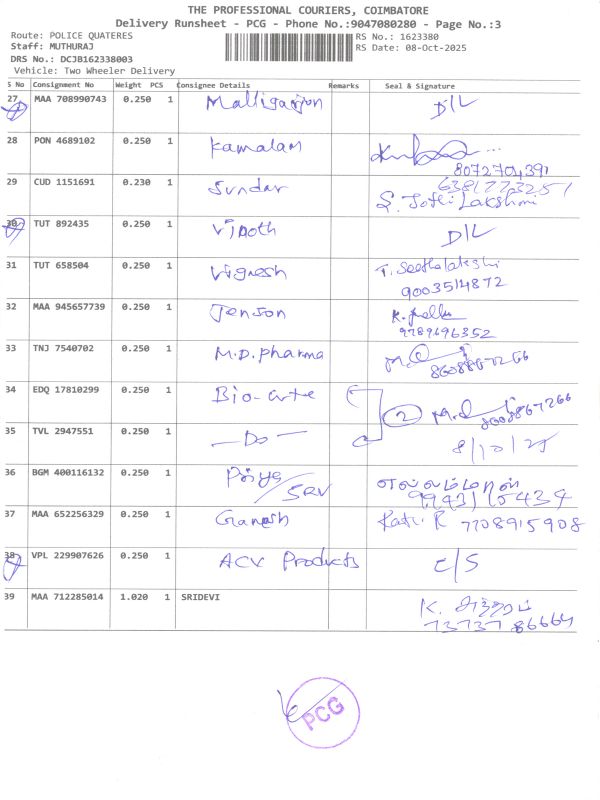 THE PROFESSIONAL COURIERS, COIMBATORE
Delivery Runsheet - PCG - Phone No.:9047080280 - Page No.:3
Route: POLICE QUATERES RS No.: 1623380
Staff: MUTHURAJ RS Date: 08-Oct-2025
DRS No.: DCJB162338003
Vehicle: Two Wheeler Delivery
S No Consignment No Weight PCS Consignee Details Remarks Seal & Signature
27 MAA 708990743 0.250 1 Malligarjon D/L
28 PON 4689102 0.250 1 Kamalam
8072704391
29 CUD 1151691 0.230 1 Sundar 6381773251
S. Jothi Lakshmi
30 TUT 892435 0.250 1 Vinoth D/L
31 TUT 658504 0.250 1 Vignesh T. Seethalakshi
9003514872
32 MAA 945657739 0.250 1 Jenson K.
9789696352
33 TNJ 7540702 0.250 1 M.D. Pharma
34 EDQ 17810299 0.250 1 Bio-
2
35 TVL 2947551 0.250 1 -Do- 8/10/25
36 BGM 400116132 0.250 1 Priya எல்லம்மாள்
SRV 9994315434
37 MAA 652256329 0.250 1 Ganesh Kavi R 7708915908
38 VPL 229907626 0.250 1 ACV Products C/S
39 MAA 712285014 1.020 1 SRIDEVI K.
73737 86664
PCG